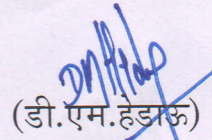 (डी.एम.हेडाऊ)